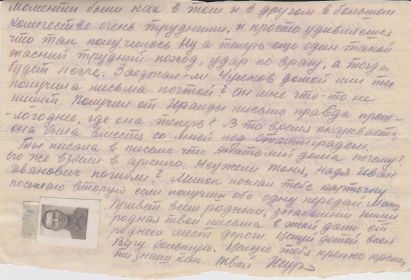 моменты были как в том и в другом в большом
количестве очень трудными, и просто удивляешься
что так получилось Ну а теперь еще один такой
трудный поход, удар по врагу, а тогда
будет легче.
получила письма почтой? он мне что-то не
пишет. Получил от письмо правда прош-
логоднее, где она теперь? В то время оказывается
она была вместе со мной под Сталинградом.
Ты писала в письме что Анатолий дома почему?
его же взяли в армию Неужели Надя Иван
Иванович погибли? послал тебе карточку
посылаю вторую если получишь обе одну передай
Привет всем родным, знакомым пиши
родная твои письма. а жой дали от
родных мест дороги. Целуй детей всех
Веру большой. Целую тебя крепко крепко
ты знаешь как. твой